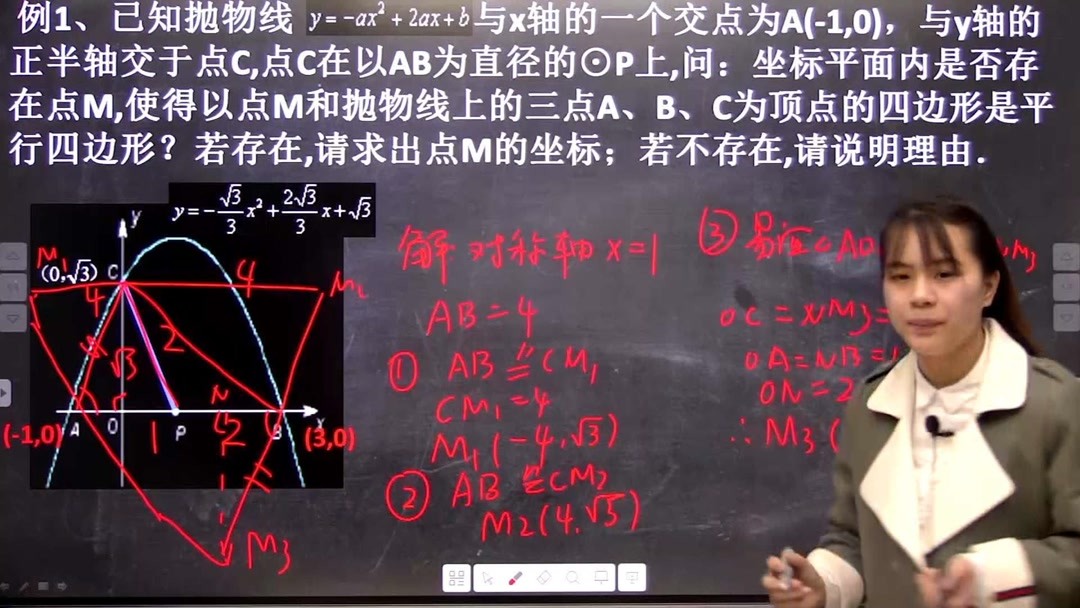 例1、已知抛物线 y=-ax²+2ax+b 与x轴的一个交点为A(-1,0)，与y轴的
正半轴交于点C,点C在以AB为直径的⊙P上,问：坐标平面内是否存
在点M,使得以点M和抛物线上的三点A、B、C为顶点的四边形是平
行四边形？若存在,请求出点M的坐标；若不存在,请说明理由．
y=-√3/3 x²+2√3/3 x+√3
y
M₁
(0,√3) C
4
4
M₂
√3
2
N
(-1,0) A O 1 P 2 B x (3,0)
M₃
解 对称轴 x=1
AB=4
① AB ∥= CM₁
CM₁=4
M₁(-4,√3)
② AB ∥= CM₂
M₂(4,√3)
③ 易证
M₃
OC=NM₃=
OA=NB=1
ON=2
∴M₃(